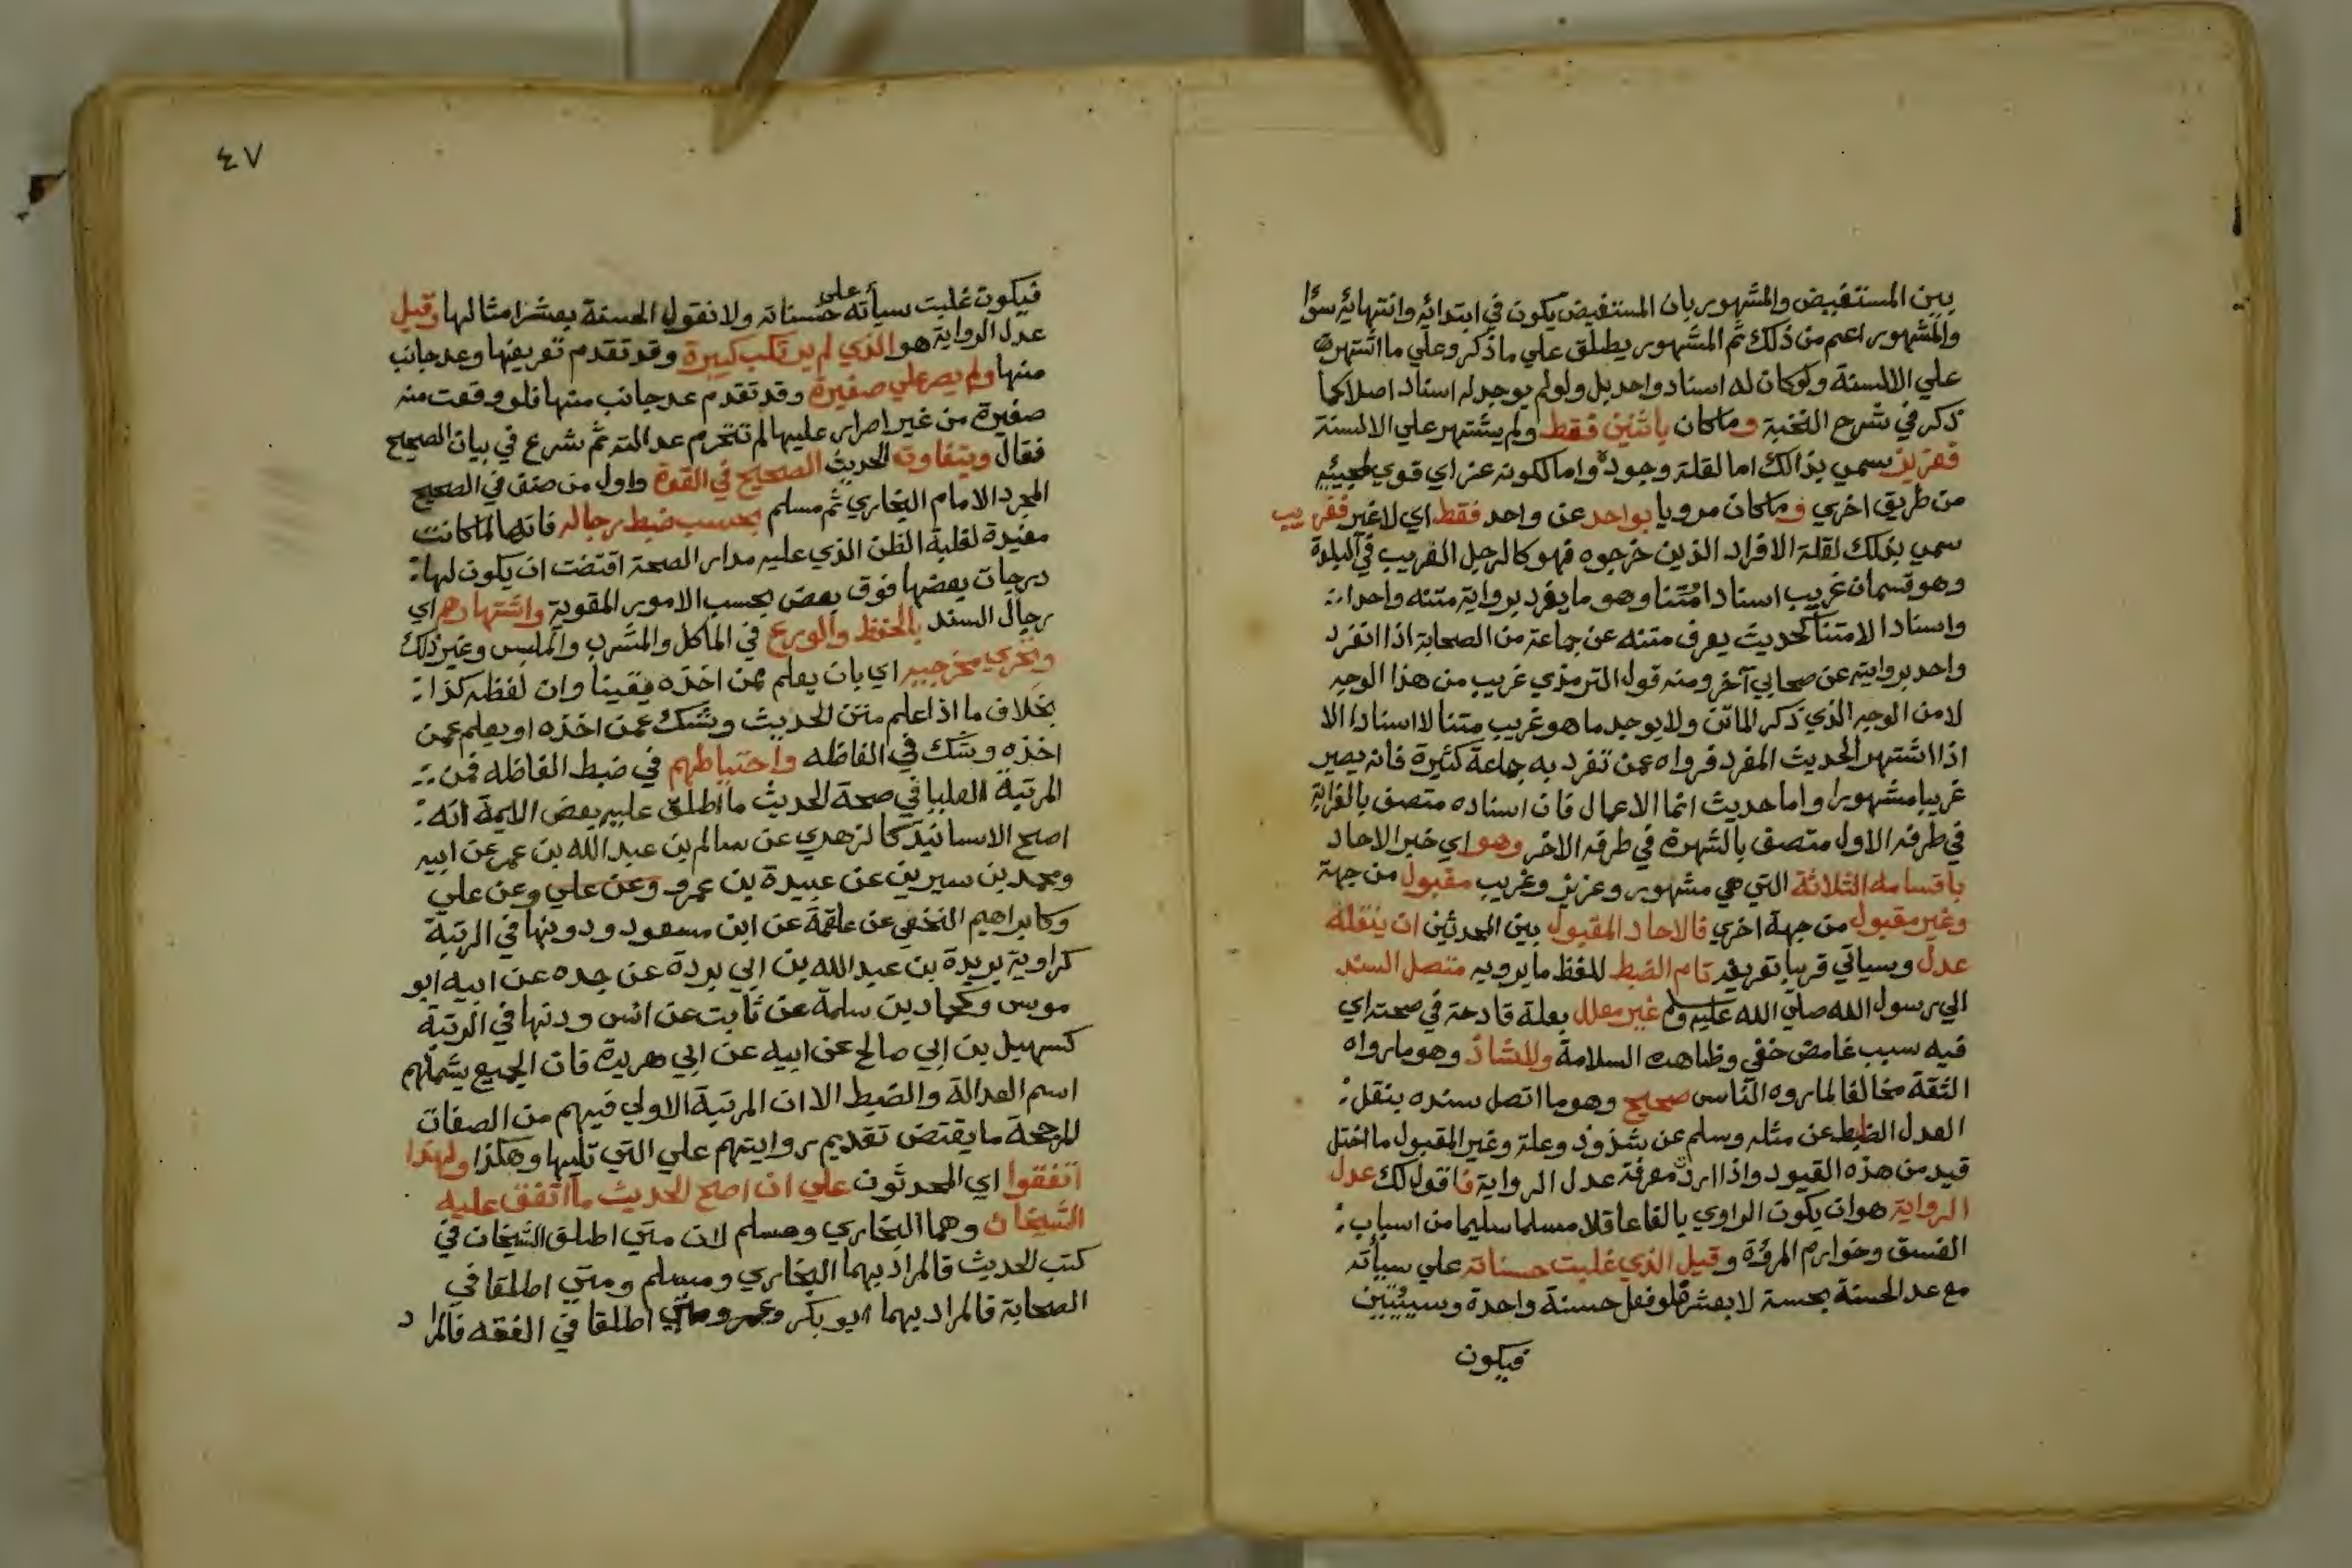 بين المستفيض والمشهور بان المستفيض يكون في ابتدائه وانتهائه سوأ
والمشهور اعم من ذلك ثم المشهور يطلق علي ما ذكر وعلي ما اشتهر
علي الالسنة ولو كان له اسناد واحد بل ولو لم يوجد له اسناد اصلا كما
ذكر في شرح النخبة وما كان باثنين فقط ولم يشتهر علي الالسنة
فعزيز سمي بذالك اما لقلة وجوده واما لكونه عز اي قوي لمجيئه
من طريق اخري وما كان مرويا بواحد عن واحد فقط اي لا غير فغريب
سمي بذلك لقلة الافراد الذين خرجوه فهو كالرجل الغريب في البلدة
وهو قسمان غريب اسنادا ومتنا وهو ما يفرد برواية متنه واحد
واسنادا لا متنا كحديث يعرف متنه عن جماعة من الصحابة اذا انفرد
واحد بروايته عن صحابي آخر ومنه قول الترمذي غريب من هذا الوجه
لا من الوجه الذي ذكر الماتن ولا يوجد ما هو غريب متنا لا اسنادا الا
اذا اشتهر الحديث المفرد فرواه عمن تفرد به جماعة كثيرة فانه يصير
غريبا مشهورا واما حديث انما الاعمال فان اسناده متصف بالغرابة
في طرفه الاول متصف بالشهرة في طرفه الاخر وهو اي خبر الاحاد
باقسامه الثلاثة التي هي مشهور وعزيز وغريب مقبول من جهة
وغير مقبول من جهة اخري فالاحاد المقبول بين المحدثين ان ينقله
عدل وسياتي قريبا تعريفه تام الضبط للفظ ما يرويه متصل السند
الي رسول الله صلي الله عليه وسلم غير معلل بعلة قادحة في صحته اي
فيه سبب غامض خفي وظاهره السلامة ولا شاذ وهو ما رواه
الثقة مخالفا لما روه الناس صحيح وهو ما اتصل سنده بنقل
العدل الضابط عن مثله وسلم عن شذوذ وعلة وغير المقبول ما اختل
قيد من هذه القيود واذا اردت معرفة عدل الرواية فاقول لك عدل
الرواية هو ان يكون الراوي بالغا عاقلا مسلما سليما من اسباب
الفسق وخوارم المروٴة وقيل الذي غلبت حسناته علي سيأته
مع عد الحسنة بحسنة لا بعشر فلو فعل حسنة واحدة وسيئتين
فيكون
٤٧
فيكون غلبت سيأته على حسناته ولا نقول الحسنة بعشر امثالها وقيل
عدل الرواية هو الذي لم يرتكب كبيرة وقد تقدم تعريفها وعد جانب
منها ولم يصر علي صغيرة وقد تقدم عد جانب منها فلو وقعت منه
صغيرة من غير اصرار عليها لم تنخرم عدالته ثم شرع في بيان الصحيح
فقال ويتفاوت الحديث الصحيح في القوة واول من صنف في الصحيح
المجرد الامام البخاري ثم مسلم بحسب ضبط رجاله فانها لما كانت
مفيدة لغلبة الظن الذي عليه مدار الصحة اقتضت ان يكون لها
درجات بعضها فوق بعض بحسب الامور المقوية واشتهارهم اي
رجال السند بالحفظ والورع في الماكل والمشرب والملبس وغير ذلك
وتحري مخرجيه اي بان يعلم ممن اخذه يقينا وان لفظه كذا
بخلاف ما اذا علم متن الحديث وشك عمن اخذه او يعلم عمن
اخذه وشك في الفاظه واحتياطهم في ضبط الفاظه فمن
المرتبة العليا في صحة الحديث ما اطلق عليه بعض الايمة انه
اصح الاسانيد كالزهدي عن سالم بن عبد الله بن عمر عن ابيه
ومحمد بن سيرين عن عبيدة بن عمرو وعن علي وعن علي
وكابراهيم النخعي عن علقمة عن ابن مسعود ودونها في الرتبة
كراوية بريدة بن عبد الله بن ابي بردة عن جده عن ابيه ابو
موسي وكحماد بن سلمة عن ثابت عن انس ودنها في الرتبة
كسهيل بن ابي صالح عن ابيه عن ابي هريرة فان الجميع يشملهم
اسم العدالة والضبط الا ان المرتبة الاولي فيهم من الصفات
المرجحة ما يقتض تقديم روايتهم علي التي تليها وهكذا ولهذا
اتفقوا اي المحدثون علي ان اصح الحديث ما اتفق عليه
الشيخان وهما البخاري ومسلم لان متي اطلق الشيخان في
كتب الحديث فالمراد بهما البخاري ومسلم ومتي اطلقا في
الصحابة فالمراد بهما ابو بكر وعمر ومتي اطلقا في الفقه فالمراد